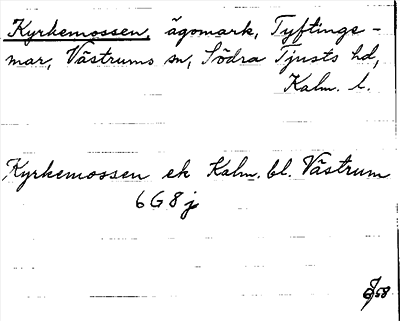 Kyrkemossen, ägomark, Tyftings-
mar, Västrums sn, Södra Tjusts hd,
Kalm. l.
Kyrkemossen ek Kalm. bl. Västrum
6G8j